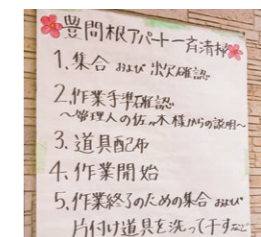 豊間根アパート一斉清掃
1.集合 および 出欠確認
2.作業手準確認
～管理人の佐々木様からの説明～
3.道具配布
4.作業開始
5.作業終了のための集合 および
片付け道具を洗って干すなど